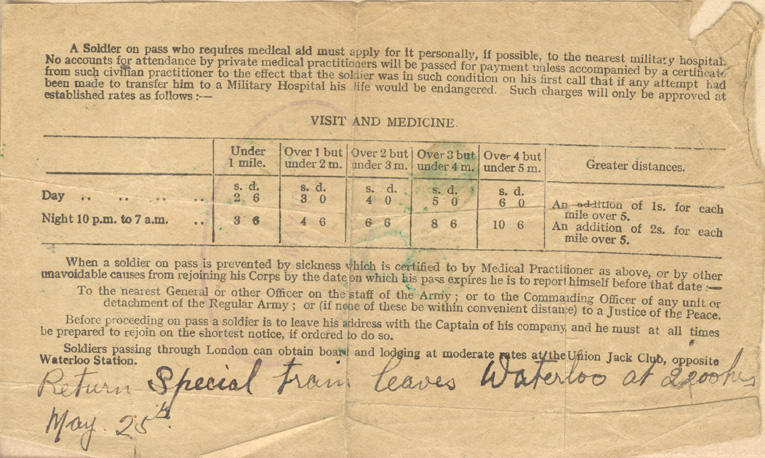 A Soldier on pass who requires medical aid must apply for it personally, if possible, to the nearest military hospital.
No accounts for attendance by private medical practitioners will be passed for payment unless accompanied by a certificate
from such civilian practitioner to the effect that the soldier was in such condition on his first call that if any attempt had
been made to transfer him to a Military Hospital his life would be endangered. Such charges will only be approved at
established rates as follows :—
VISIT AND MEDICINE.
Under 1 mile. Over 1 but under 2 m. Over 2 but under 3 m. Over 3 but under 4 m. Over 4 but under 5 m. Greater distances.
s. d. s. d. s. d. s. d. s. d.
Day .. .. .. .. 2 6 3 0 4 0 5 0 6 0 An addition of 1s. for each mile over 5.
Night 10 p.m. to 7 a.m. .. 3 6 4 6 6 6 8 6 10 6 An addition of 2s. for each mile over 5.
When a soldier on pass is prevented by sickness which is certified to by Medical Practitioner as above, or by other
unavoidable causes from rejoining his Corps by the date on which his pass expires he is to report himself before that date :—
To the nearest General or other Officer on the staff of the Army ; or to the Commanding Officer of any unit or
detachment of the Regular Army ; or (if none of these be within convenient distance) to a Justice of the Peace.
Before proceeding on pass a soldier is to leave his address with the Captain of his company, and he must at all times
be prepared to rejoin on the shortest notice, if ordered to do so.
Soldiers passing through London can obtain board and lodging at moderate rates at the Union Jack Club, opposite
Waterloo Station.
Return Special train leaves Waterloo at 2200 hrs
May. 25th.